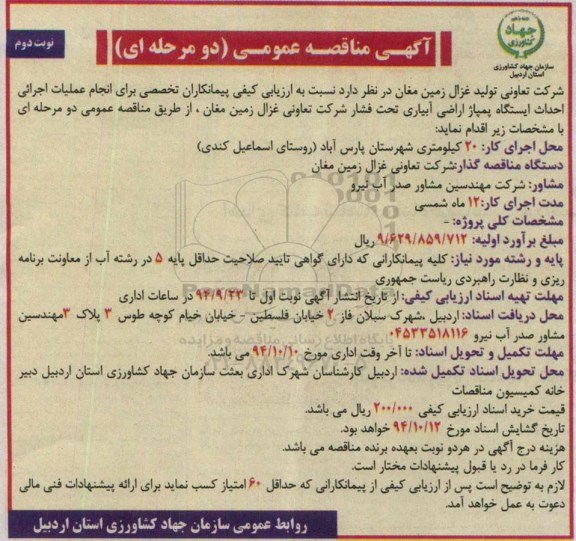 جهاد کشاورزی
سازمان جهاد کشاورزی
استان اردبیل
آگهـی مناقصـه عمومـی (دو مرحله ای)
نوبت دوم
شرکت تعاونی تولید غزال زمین مغان در نظر دارد نسبت به ارزیابی کیفی پیمانکاران تخصصی برای انجام عملیات اجرائی
احداث ایستگاه پمپاژ اراضی آبیاری تحت فشار شرکت تعاونی غزال زمین مغان ، از طریق مناقصه عمومی دو مرحله ای
با مشخصات زیر اقدام نماید:
محل اجرای کار: ۲۰ کیلومتری شهرستان پارس آباد (روستای اسماعیل کندی)
دستگاه مناقصه گذار:شرکت تعاونی غزال زمین مغان
مشاور: شرکت مهندسین مشاور صدر آب نیرو
مدت اجرای کار:۱۲ ماه شمسی
مشخصات کلی پروژه: -
مبلغ برآورد اولیه: ۹/۶۲۹/۸۵۹/۷۱۲ ریال
پایه و رشته مورد نیاز: کلیه پیمانکارانی که دارای گواهی تایید صلاحیت حداقل پایه ۵ در رشته آب از معاونت برنامه
ریزی و نظارت راهبردی ریاست جمهوری
مهلت تهیه اسناد ارزیابی کیفی: از تاریخ انتشار آگهی نوبت اول تا ۹۴/۹/۲۳ در ساعات اداری
محل دریافت اسناد: اردبیل ،شهرک سبلان فاز ۲ خیابان فلسطین - خیابان خیام کوچه طوس ۳ پلاک ۳مهندسین
مشاور صدر آب نیرو ۰۴۵۳۳۵۱۸۱۱۶
مهلت تکمیل و تحویل اسناد: تا آخر وقت اداری مورخ ۹۴/۱۰/۱۰ می باشد.
محل تحویل اسناد تکمیل شده: اردبیل کارشناسان شهرک اداری بعثت سازمان جهاد کشاورزی استان اردبیل دبیر
خانه کمیسیون مناقصات
قیمت خرید اسناد ارزیابی کیفی ۲۰۰/۰۰۰ ریال می باشد.
تاریخ گشایش اسناد مورخ ۹۴/۱۰/۱۲ خواهد بود.
هزینه درج آگهی در هردو نوبت بعهده برنده مناقصه می باشد.
کار فرما در رد یا قبول پیشنهادات مختار است.
لازم به توضیح است پس از ارزیابی کیفی از پیمانکارانی که حداقل ۶۰ امتیاز کسب نماید برای ارائه پیشنهادات فنی مالی
دعوت به عمل خواهد آمد.
روابط عمومی سازمان جهاد کشاورزی استان اردبیل